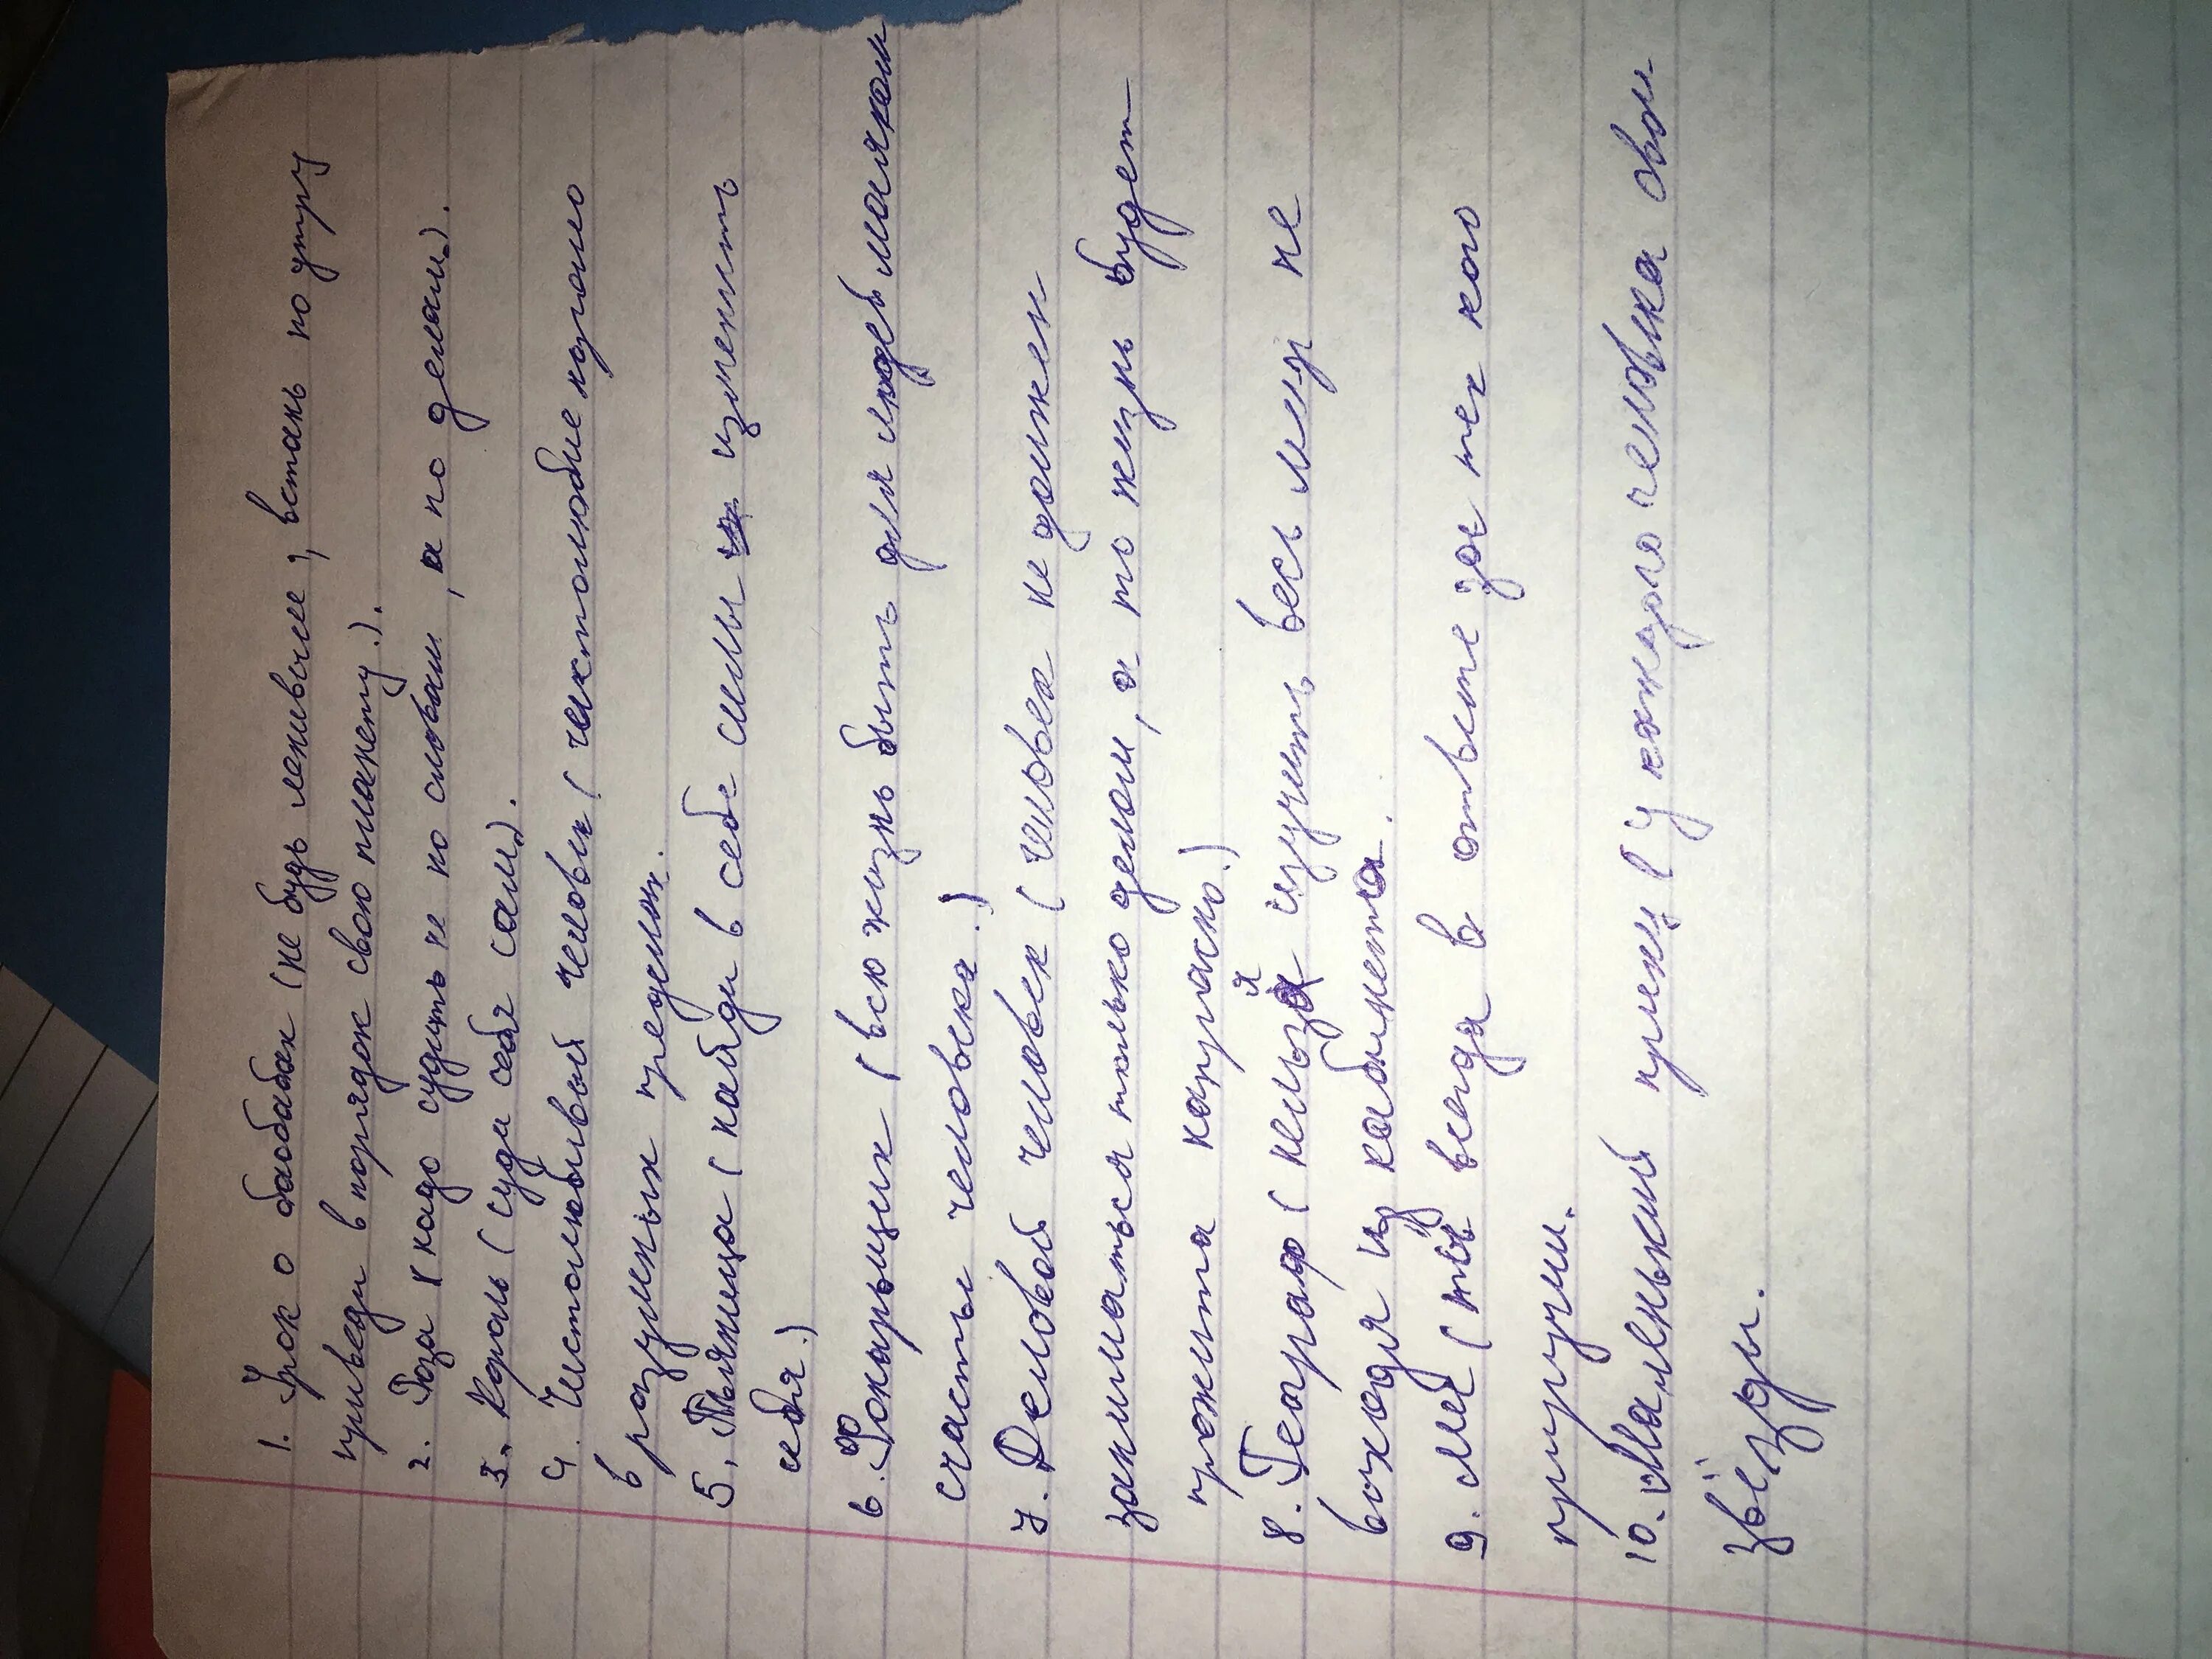 1. Урок о баобабах (не будь ленивыче ;, встань по утру
приведи в порядок свою планету.).
2. Роза (надо судить не по словам, а по делам).
3. Король (суда себя сам).
4. Чистолюбивый человек (чистолюбие хорошо
в разумных пределах.
5. Пьяница (найди в себе силы изменить
себя.)
6. Фонарщик (всю жизнь быть для людей маяком
счастье человека.)
7. Деловой человек (человек не должен
заниматься только делом, а то жизнь будет
прожита напрасно.)
8. Географ (нельзя изучить весь мир не
выходя из кабинета.
9. Лис (ты всегда в ответе за тех кого
приручи.
10. Маленький принц (У каждого человека свои
звёзды.